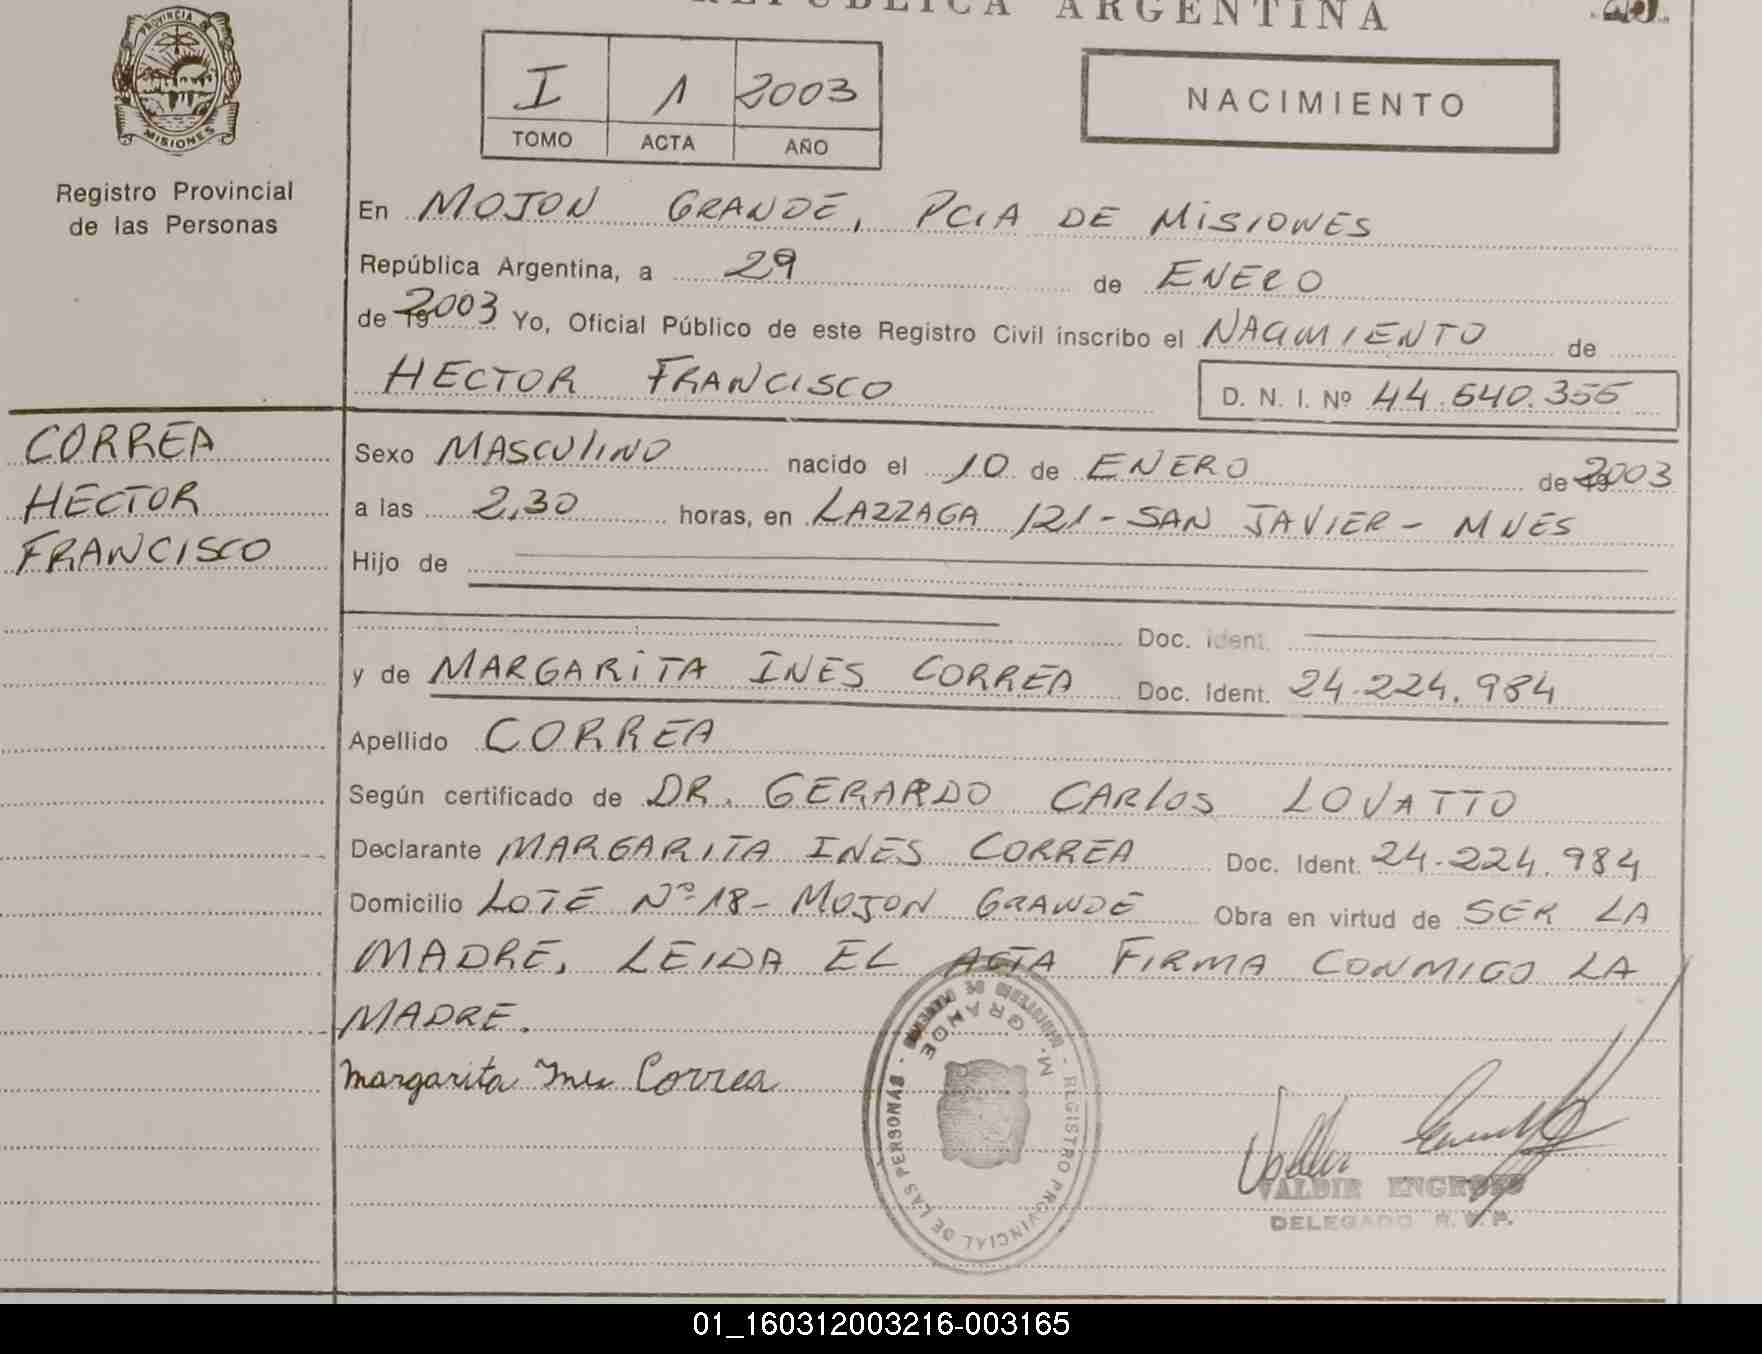 REPUBLICA ARGENTINA
PROVINCIA
MISIONES
Registro Provincial
de las Personas
I 1 2003
TOMO ACTA AÑO
NACIMIENTO
En MOJON GRANDE, PCIA DE MISIONES
República Argentina, a 29 de ENERO
de 2003 Yo, Oficial Público de este Registro Civil inscribo el NACIMIENTO de
HECTOR FRANCISCO D. N. I. Nº 44.640.355
CORREA
HECTOR
FRANCISCO
Sexo MASCULINO nacido el 10 de ENERO de 2003
a las 2,30 horas, en LAZZAGA 121 - SAN JAVIER - MNES
Hijo de
Doc. Ident.
y de MARGARITA INES CORREA Doc. Ident. 24.224.984
Apellido CORREA
Según certificado de DR. GERARDO CARLOS LOVATTO
Declarante MARGARITA INES CORREA Doc. Ident. 24.224.984
Domicilio LOTE Nº 18 - MOJON GRANDE Obra en virtud de SER LA
MADRE, LEIDA EL ACTA FIRMA CONMIGO LA
MADRE.
Margarita Ines Correa
REGISTRO PROVINCIAL DE LAS PERSONAS
M. GRANDE
VALDIR ENGROFF
DELEGADO R. P. P.
01_160312003216-003165